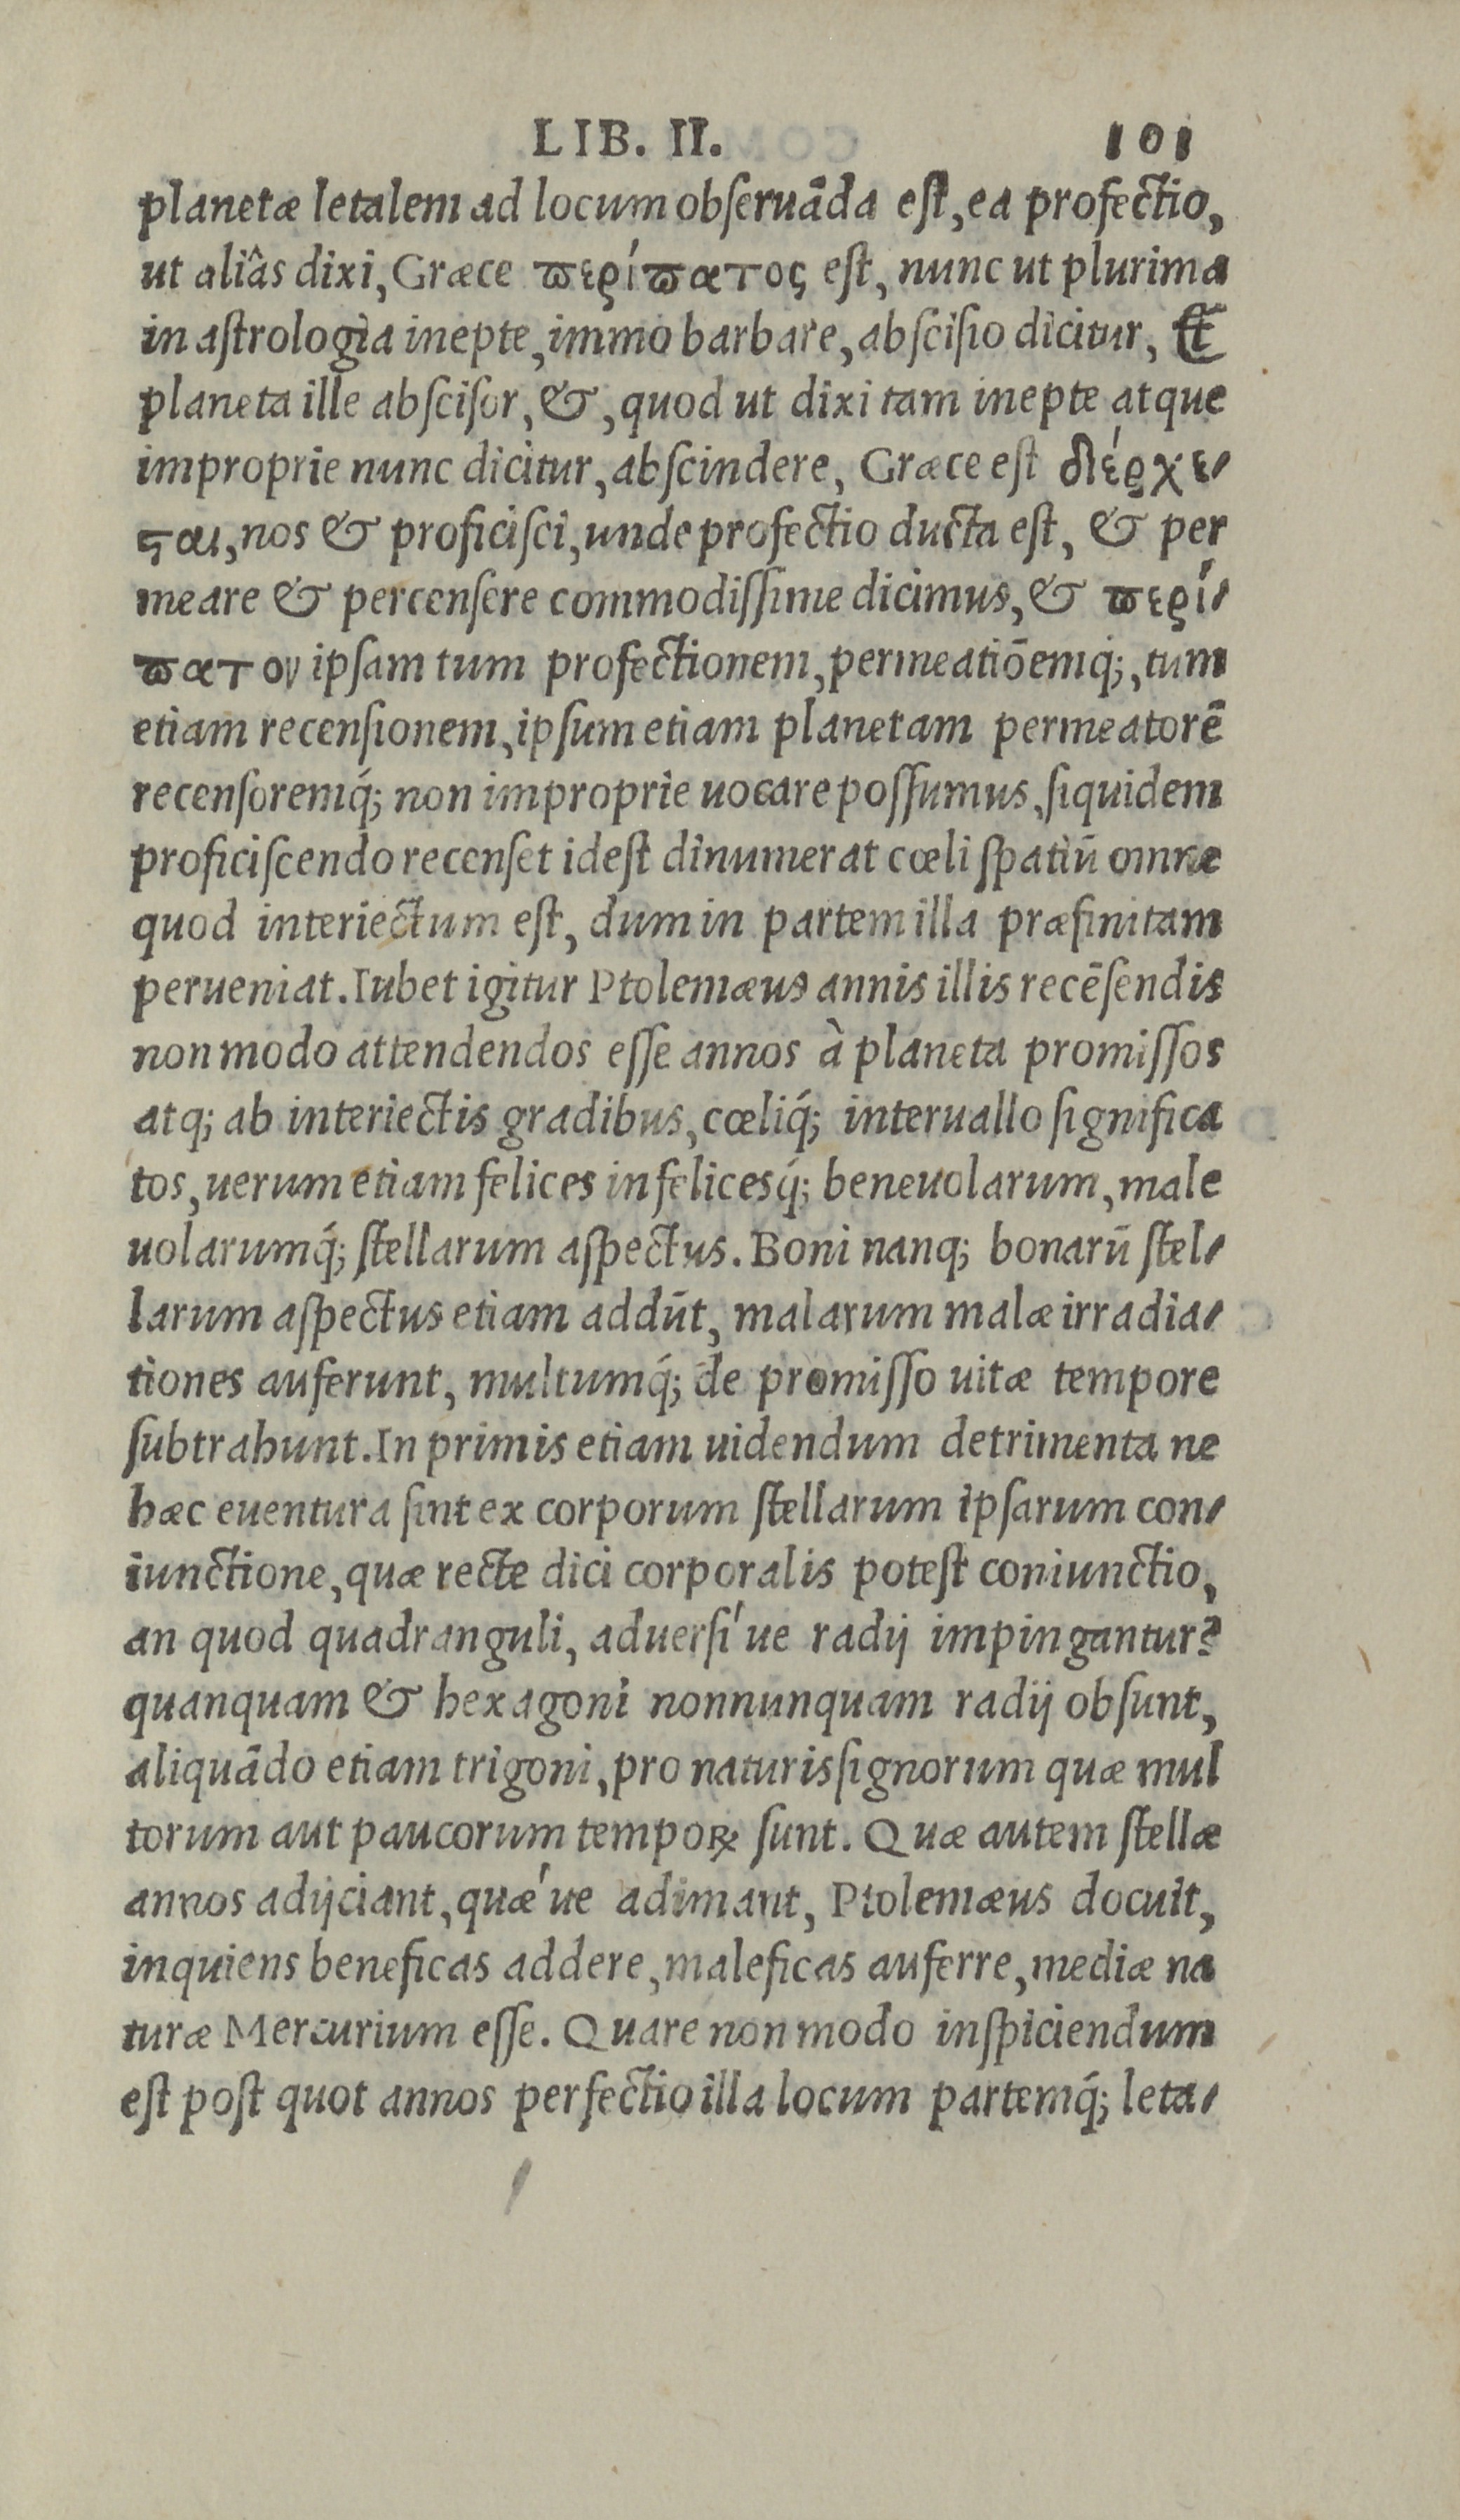 LIB. II. 101
planetæ letalem ad locum obseruãda est, ea profectio,
ut aliâs dixi, Græce ϖερίϖατος est, nunc ut plurima
in astrologia inepte, immo barbare, abscisio dicitur, &
planeta ille abscisor, &, quod ut dixi tam inepte atque
improprie nunc dicitur, abscindere, Græce est διέρχε-
ϛαι, nos & proficisci, unde profectio ducta est, & per
meare & percensere commodissime dicimus, & ϖερί-
ϖατον ipsam tum profectionem, permeatiõemq́;, tum
etiam recensionem, ipsum etiam planetam permeatorẽ
recensoremq́; non improprie uocare possumus, siquidem
proficiscendo recenset idest dinumerat cœli spatiũ omne
quod interiectum est, dum in partem illa præfinitam
perueniat. Iubet igitur Ptolemæus annis illis recẽsendis
non modo attendendos esse annos à planeta promissos
atq; ab interiectis gradibus, cœliq́; interuallo significa
tos, uerum etiam felices infelicesq́; beneuolarum, male
uolarumq́; stellarum aspectus. Boni nanq; bonarũ stel-
larum aspectus etiam addũt, malarum malæ irradia-
tiones auferunt, multumq́; de promisso uitæ tempore
subtrahunt. In primis etiam uidendum detrimenta ne
hæc euentura sint ex corporum stellarum ipsarum con-
iunctione, quæ recte dici corporalis potest coniunctio,
an quod quadranguli, aduersi´ue radij impingantur?
quanquam & hexagoni nonnunquam radij obsunt,
aliquãdo etiam trigoni, pro naturis signorum quæ mul
torum aut paucorum tempoꝝ sunt. Quæ autem stellæ
annos adijciant, quæ´ue adimant, Ptolemæus docuit,
inquiens beneficas addere, maleficas auferre, mediæ na
turæ Mercurium esse. Quare non modo inspiciendum
est post quot annos perfectio illa locum partemq́; leta-